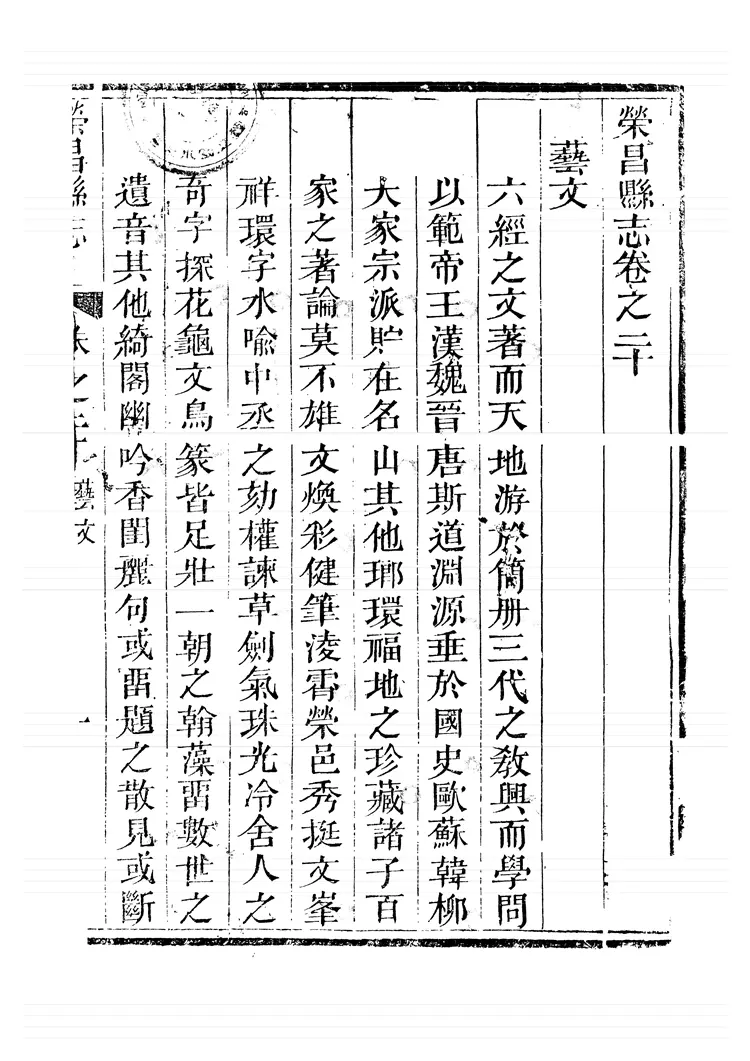 榮昌縣志卷之二十
藝文
六經之文著而天地游於簡册三代之敎興而學問
以範帝王漢魏晉唐斯道淵源垂於國史歐蘇韓柳
大家宗派貯在名山其他瑯環福地之珍藏諸子百
家之著論莫不雄文煥彩健筆淩霄榮邑秀挺文峯
祥環字水喻中丞之劾權諫草劍氣珠光冷舍人之
奇字探花龜文鳥篆皆足壯一朝之翰藻畱數世之
遺音其他綺閣幽吟香閨麗句或畱題之散見或斷
榮昌縣志 卷之二十 藝文 一